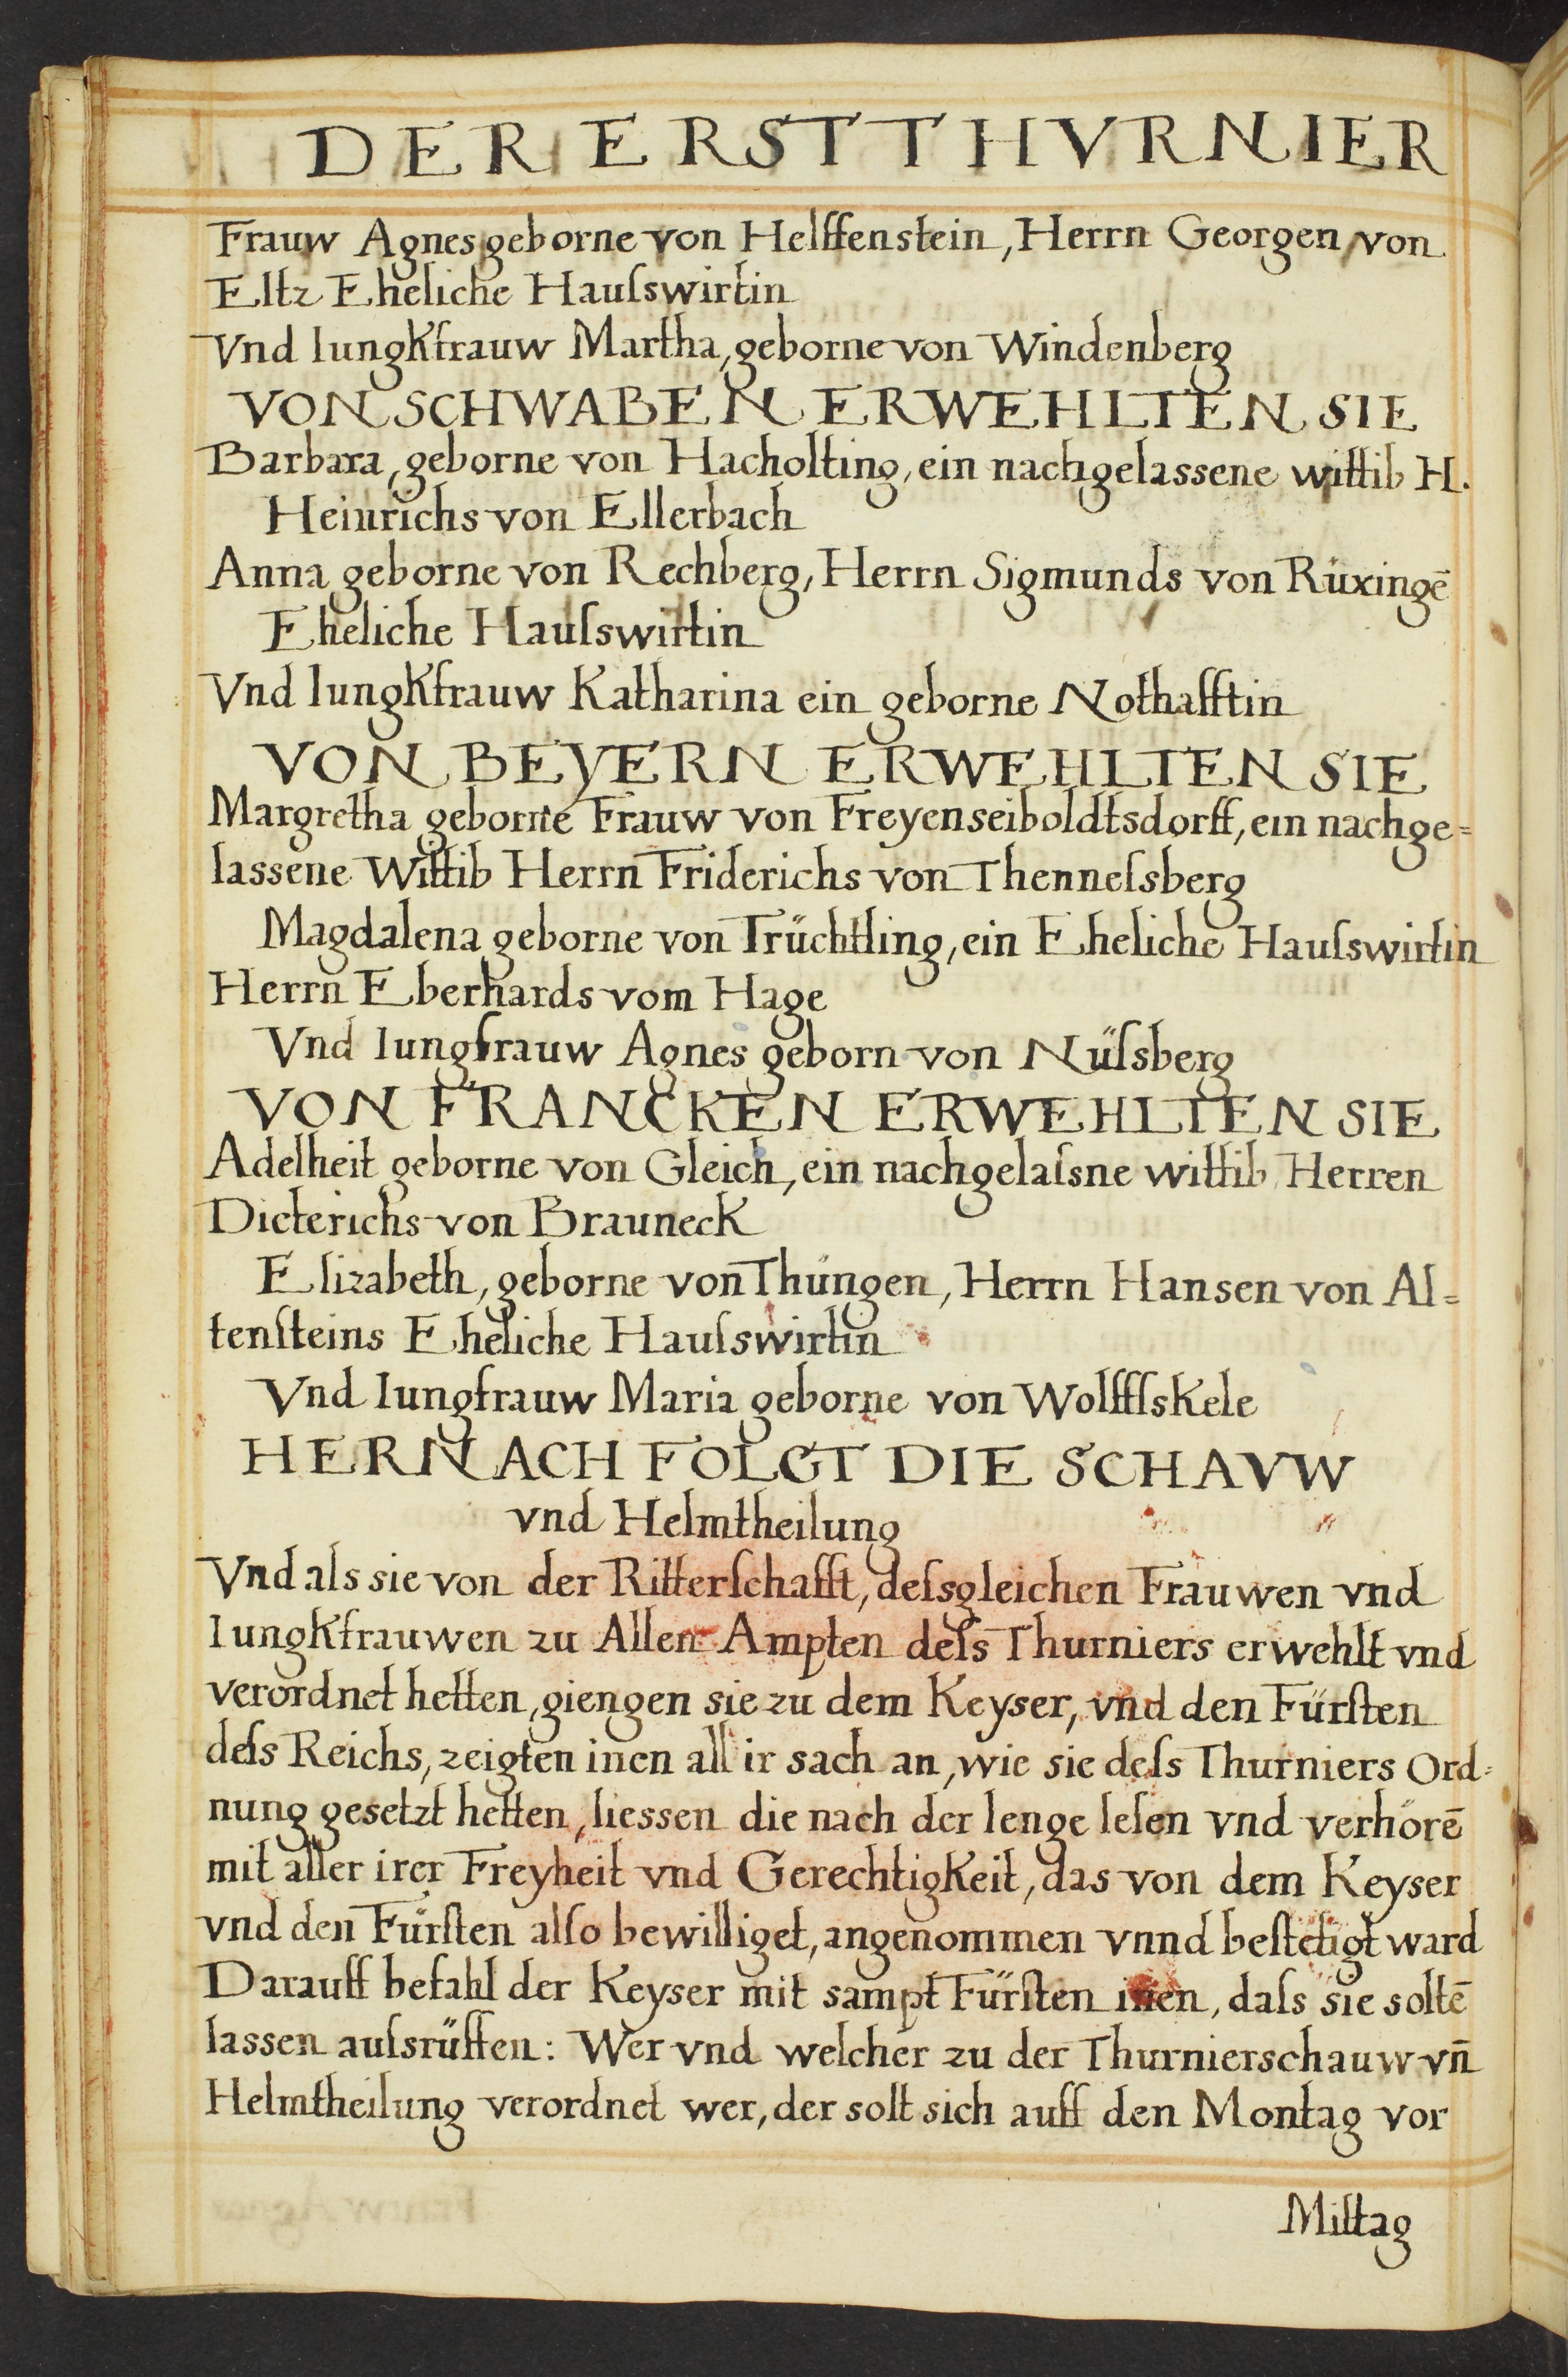 DER ERST THVRNIER
Frauw Agnes geborne von Helffenstein, Herrn Georgen von
Eltz Eheliche Hauſswirtin
Vnd Iungkfrauw Martha, geborne von Windenberg
VON SCHWABEN ERWEHLTEN SIE
Barbara, geborne von Hacholting, ein nachgelassene wittib H.
Heinrichs von Ellerbach
Anna geborne von Rechberg, Herrn Sigmunds von Rüxingē
Eheliche Hauſswirtin
Vnd Iungkfrauw Katharina ein geborne Nothafftin
VON BEYERN ERWEHLTEN SIE
Margretha geborne Frauw von Freyenseiboldtsdorff, ein nachge=
lassene Wittib Herrn Friderichs von Thenneſsberg
Magdalena geborne von Trüchtling, ein Eheliche Hauſswirtin
Herrn Eberhards vom Hage
Vnd Iungfrauw Agnes geborn von Nüſsberg
VON FRANCKEN ERWEHLTEN SIE
Adelheit geborne von Gleich, ein nachgelaſsne wittib Herren
Dieterichs von Brauneck
Elizabeth, geborne von Thüngen, Herrn Hansen von Al=
tenſteins Eheliche Hauſswirtin
Vnd Iungfrauw Maria geborne von Wolffſskele
HERNACH FOLGT DIE SCHAVW
vnd Helmtheilung
Vnd als sie von der Ritterſchafft, deſsgleichen Frauwen vnd
Iungkfrauwen zu Allen Ampten deſs Thurniers erwehlt vnd
verordnet hetten, giengen sie zu dem Keyser, vnd den Fürſten
deſs Reichs, zeigten inen all ir sach an, wie sie deſs Thurniers Ord=
nung gesetzt hetten, liessen die nach der lenge leſen vnd verhörē
mit aller irer Freyheit vnd Gerechtigkeit, das von dem Keyser
vnd den Fürſten alſo bewilliget, angenommen vnnd beſtetigt ward
Darauff befahl der Keyser mit sampt Fürſten inen, daſs sie soltē
lassen auſsrüffen: Wer vnd welcher zu der Thurnierschauw vn̄
Helmtheilung verordnet wer, der solt sich auff den Montag vor
Mittag